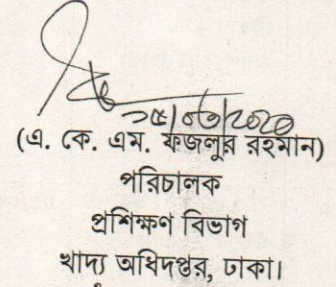 (এ. কে. এম. ফজলুর রহমান)
পরিচালক
প্রশিক্ষণ বিভাগ
খাদ্য অধিদপ্তর, ঢাকা।